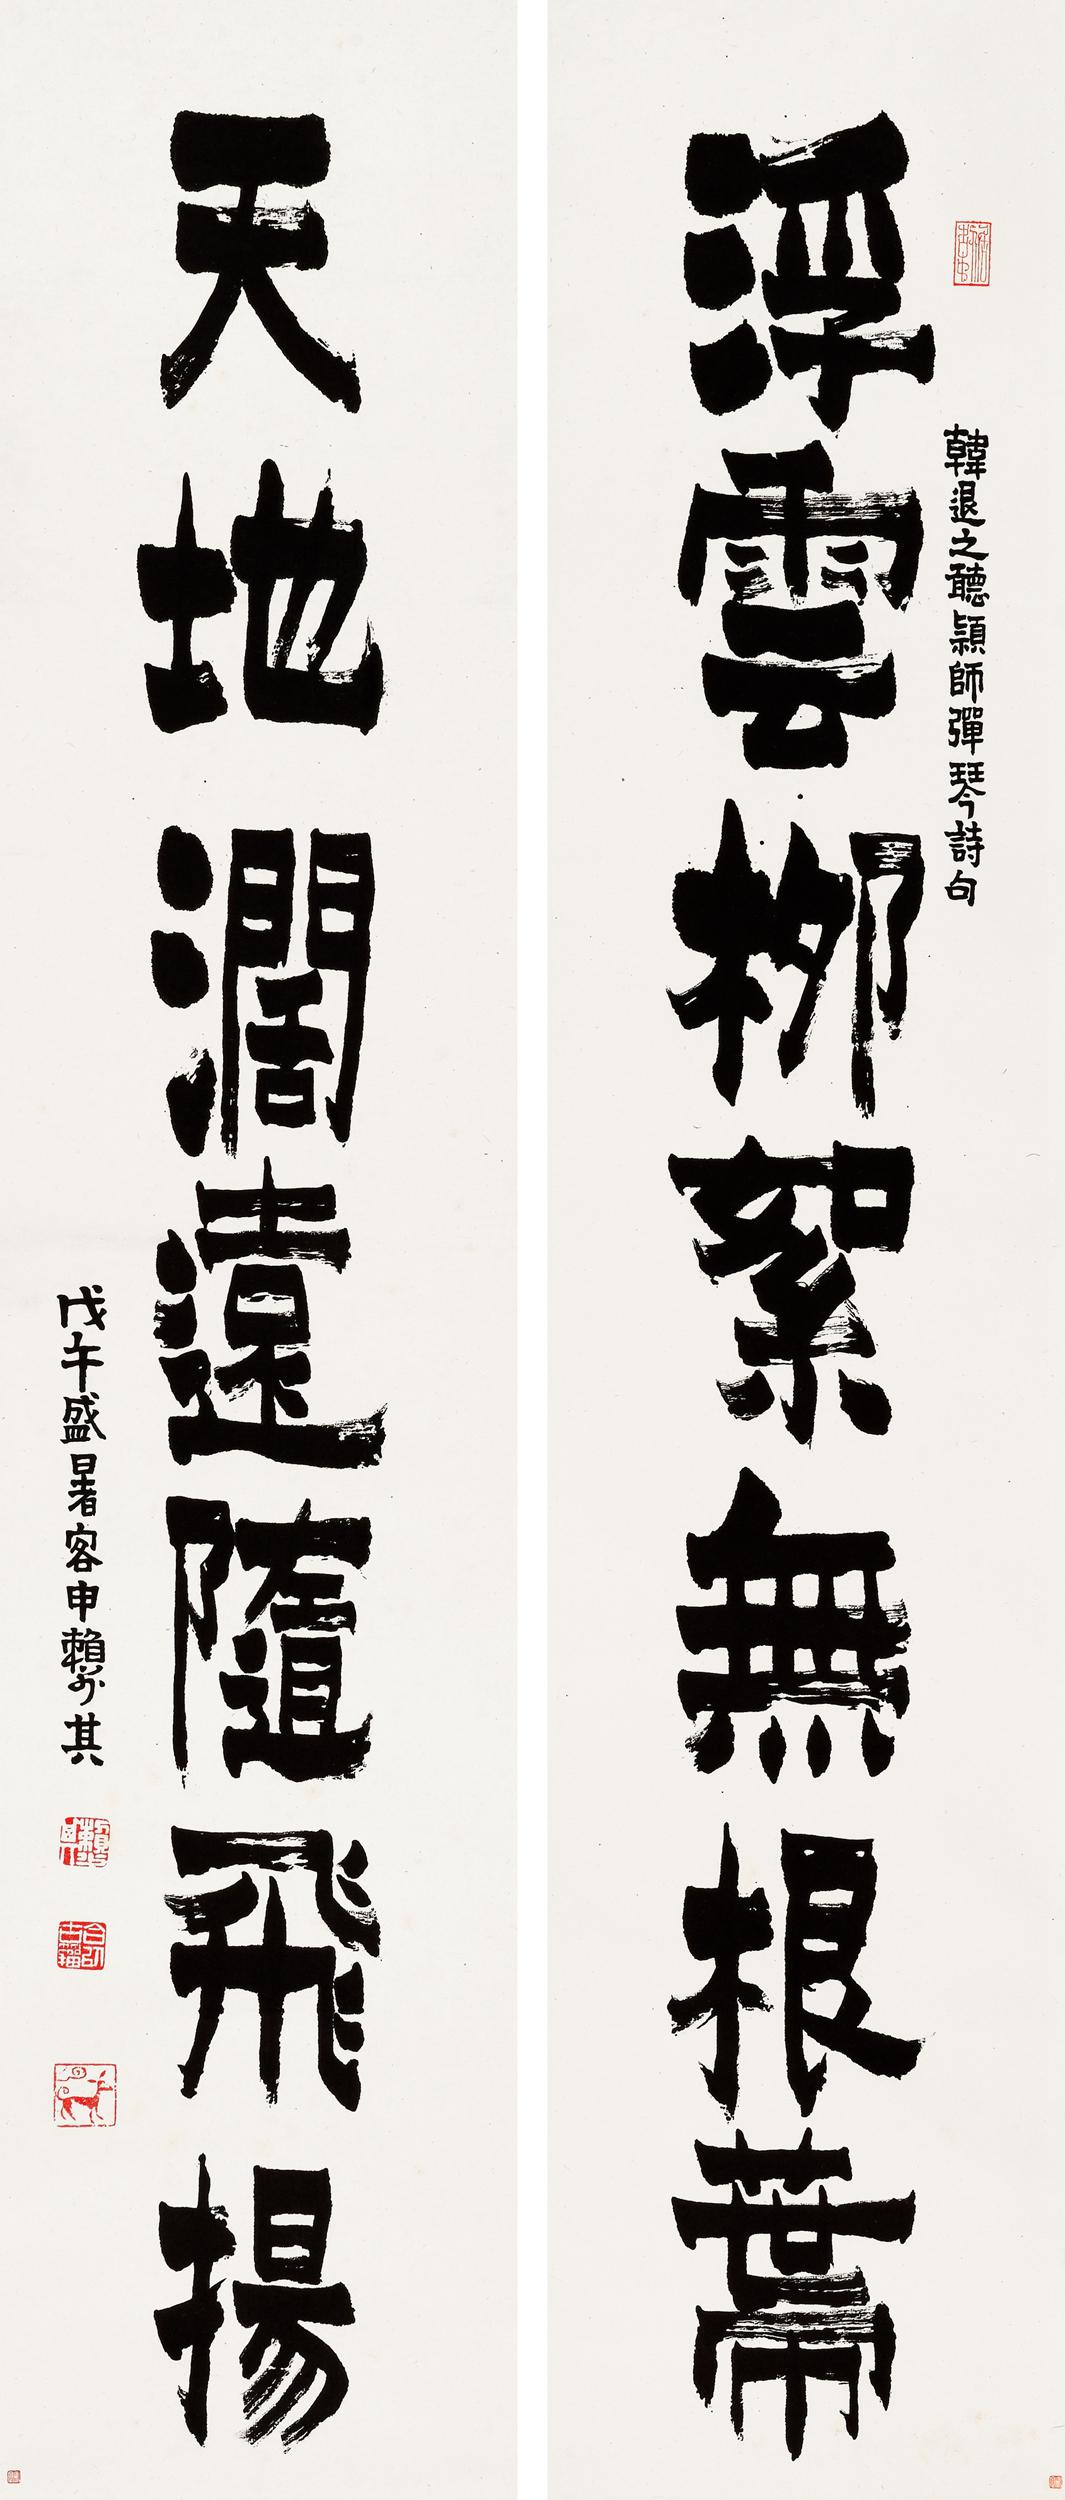 韓退之聽穎師彈琴詩句
浮雲柳絮無根蔕
天地濶遠隨飛揚
戊午盛暑客申賴少其